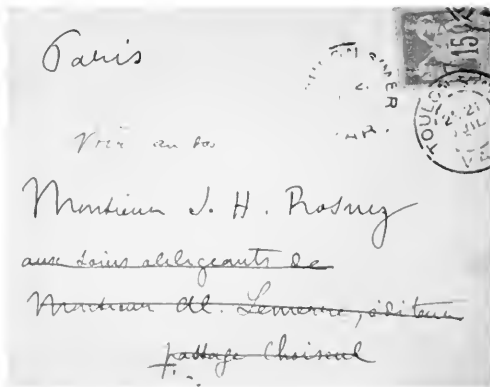 Paris
TOULON
Voir au dos
Monsieur J. H. Rosny
aux soins obligeants de
Monsieur Al. Lemerre, éditeur
passage Choiseul